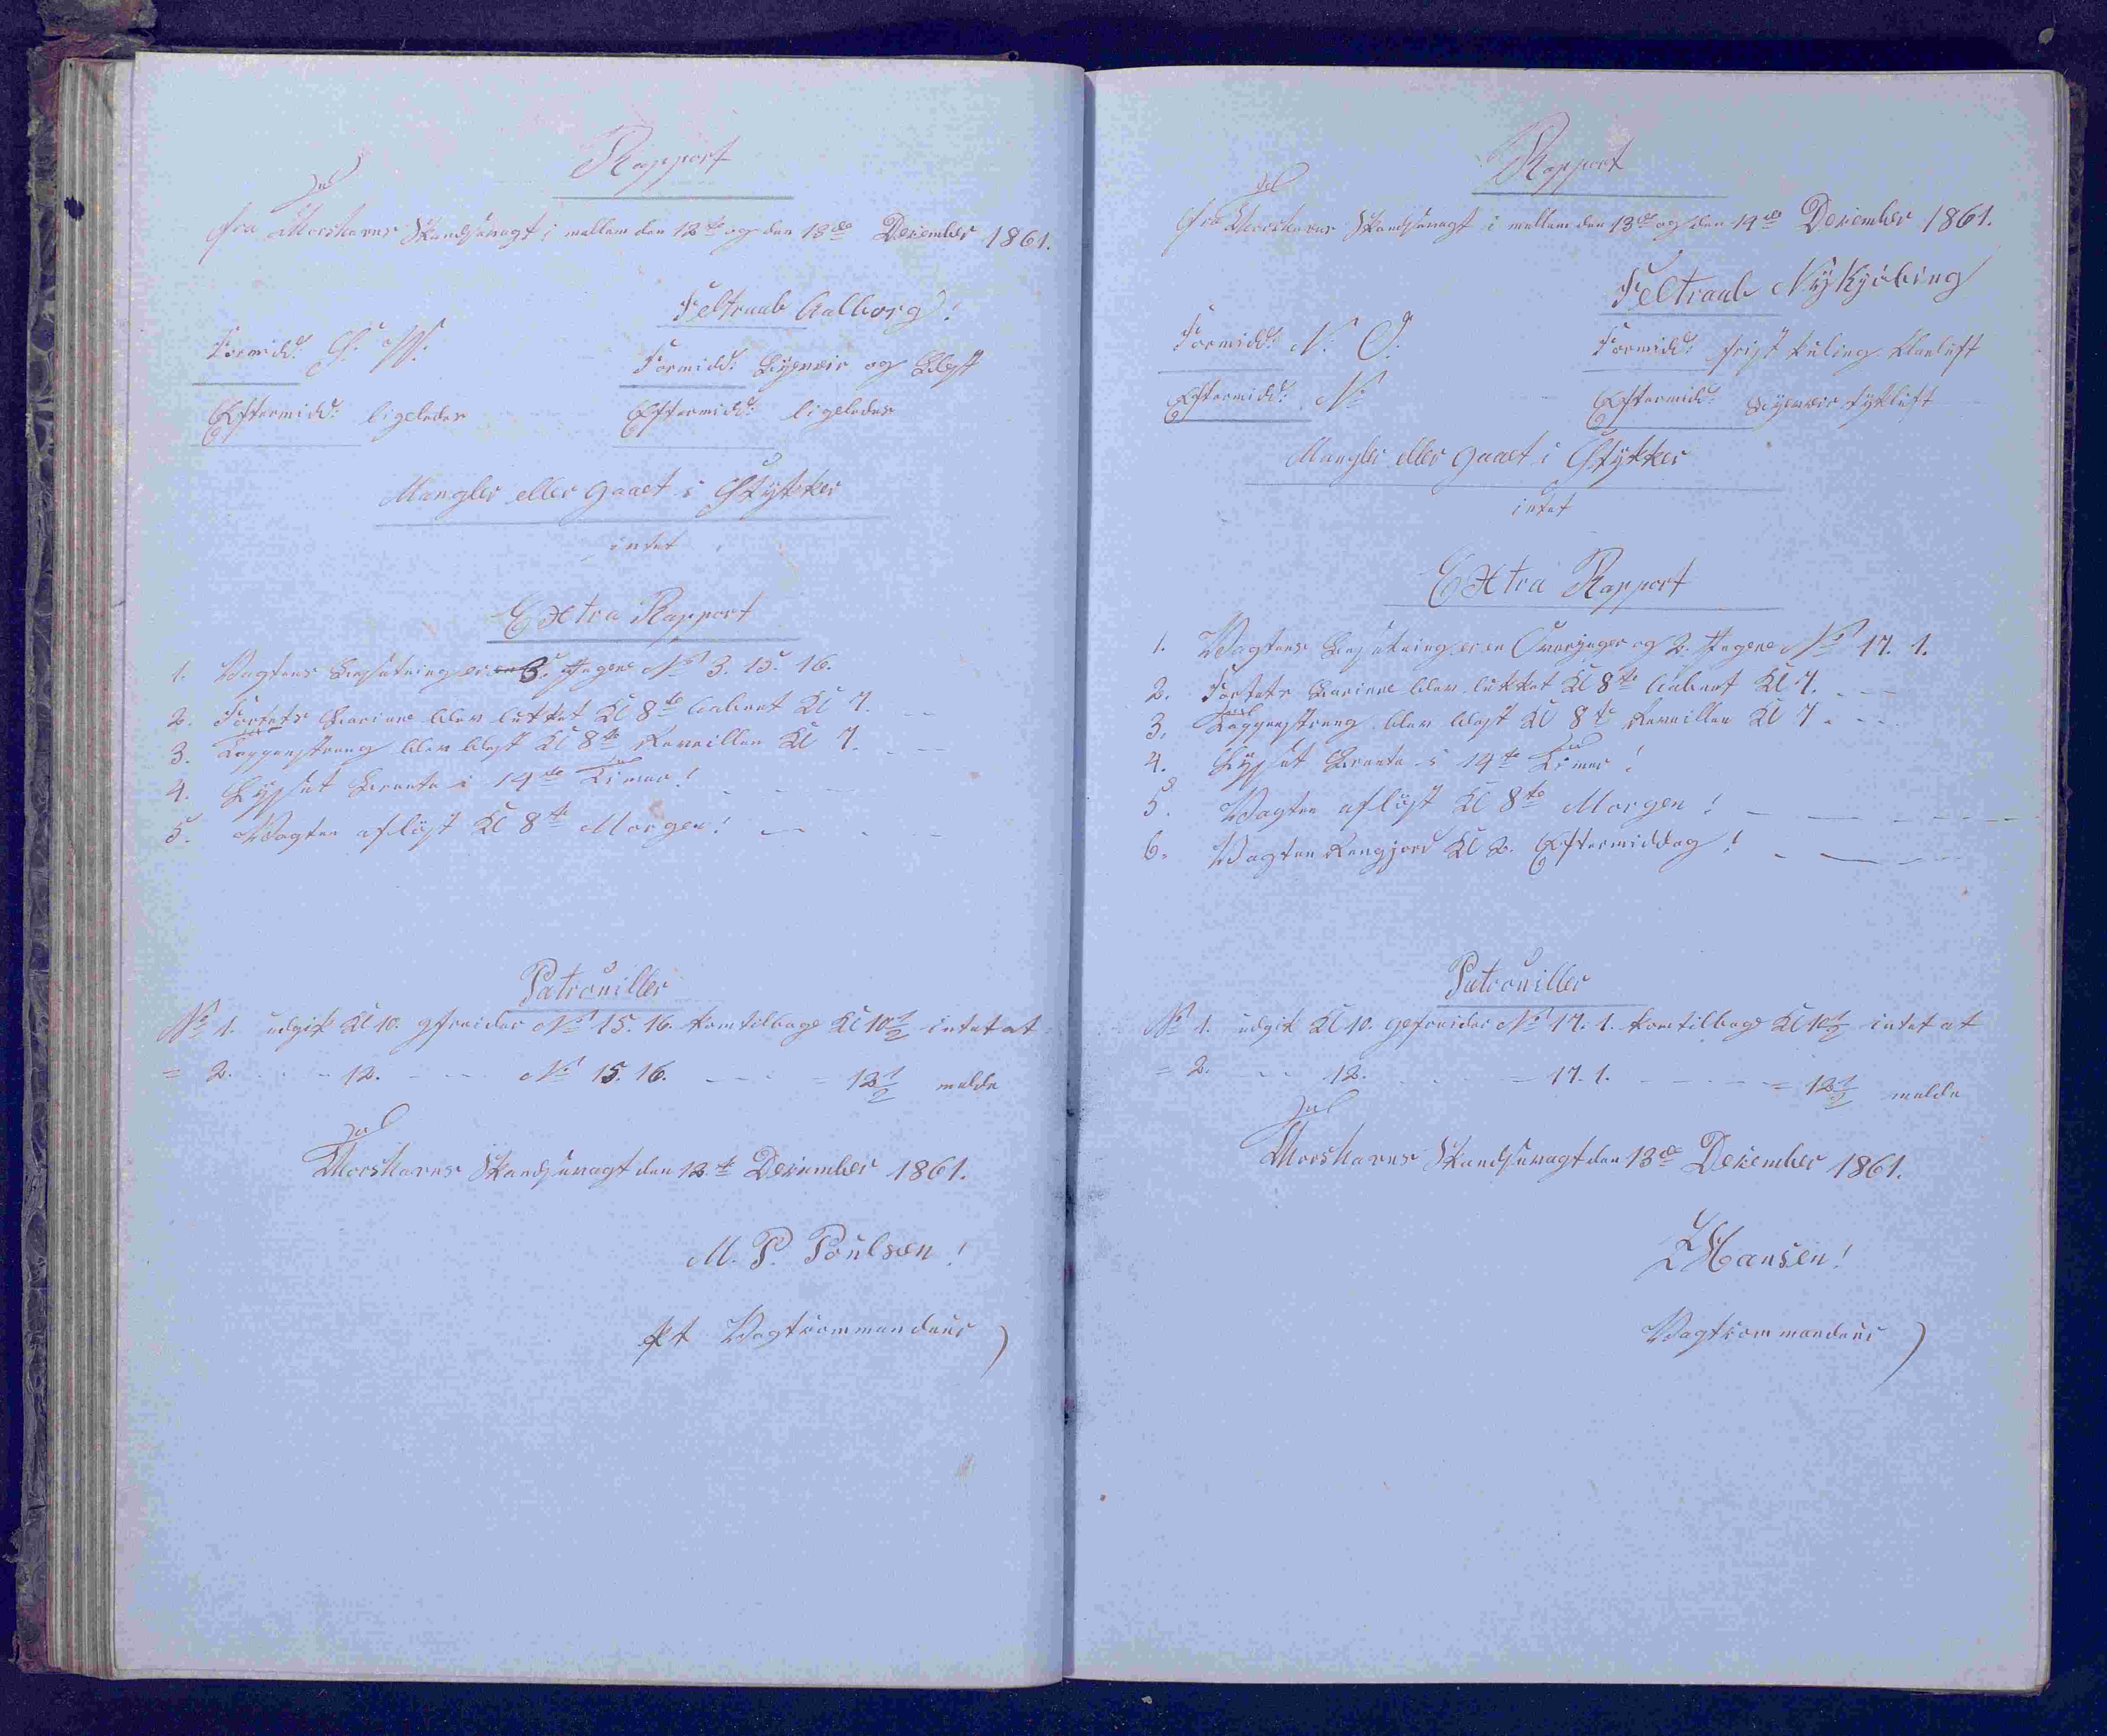 Rapport
fra Thorshavns Skandsevagt i mellem den 12te og den 13de Desember 1861.
Feltraab Aalborg!
Formidd: S. W.
Formidd: Bygeveir og Blæst
Eftermidd: ligeledes
Eftermidd: ligeledes
Mangler eller gaaet i Stykker
intet
Extra Rapport
1. Vagtens Besætning er 3. Jægere No 3. 15. 16.
2. Fortets Bariere blev lukket Kl 8te aabnet Kl 7.
3. Tappenstreg blev blæst Kl 8te Reveillen Kl 7.
4. Lyset brænte i 14de Timer!
5. Vagten afløst Kl 8te Morgen!
Patrouiller
No 1. udgik Kl 10. gfreider No 15. 16. kom tilbage Kl 10½ intet at
= 2. 12. No 15. 16. = 12½ melde
Thorshavns Skandsevagt den 12te Desember 1861.
M. P. Poulsen!
pt Vagtcommandeur
Rapport
fra Thorshavns Skandsevagt i mellem den 13de og den 14de Desember 1861.
Feltraab Nykjöbing
Formidd: N. O.
Formidd: frisk Kuling Klarluft
Eftermidd: N.
Eftermidd: Bygeveir tykluft
Mangler eller gaaet i Stykker
intet
Extra Rapport
1. Vagtens Besætning er en Overjæger og 2. Jægere No 17. 1.
2. Fortets Bariere blev lukket Kl 8te aabnet Kl 7.
3. Tappenstreg blev blæst Kl 8te Reveillen Kl 7.
4. Lyset brænte i 14te Timer!
5. Vagten afløst Kl 8te Morgen!
6. Vagten Rengjord Kl 2. Eftermiddag!
Patrouiller
No 1. udgik Kl 10. gefreider No 17. 1. kom tilbage Kl 10½ intet at
= 2. 12. = 17. 1. = 12½ melde
Thorshavns Skandsevagt den 13de Desember 1861.
Hansen!
Vagtcommandeur